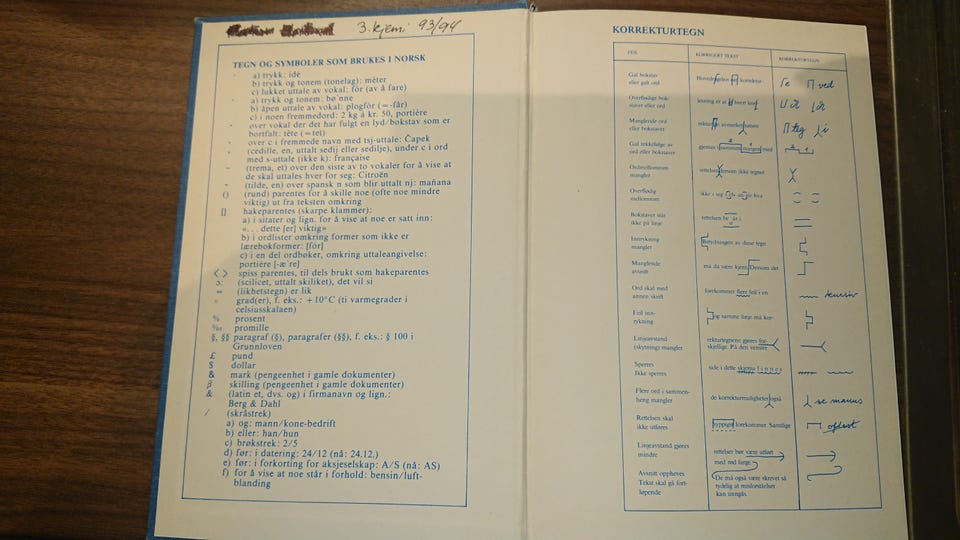 3. kjemi 93/94
TEGN OG SYMBOLER SOM BRUKES I NORSK
a) trykk: idé
b) trykk og tonem (tonelag): méter
c) lukket uttale av vokal: fór (av å fare)
a) trykk og tonem: bø`nne
b) åpen uttale av vokal: plogfòr (= -får)
c) i noen fremmedord: 2 kg à kr. 50, portière
over vokal der det har fulgt en lyd/bokstav som er
bortfalt: tête (= tet)
ˇ over c i fremmede navn med tsj-uttale: Čapek
(cédille, en, uttalt sedij eller sedilje), under c i ord
med s-uttale (ikke k): française
¨ (trema, et) over den siste av to vokaler for å vise at
de skal uttales hver for seg: Citroën
~ (tilde, en) over spansk n som blir uttalt nj: mañana
() (rund) parentes for å skille noe (ofte noe mindre
viktig) ut fra teksten omkring
[] hakeparentes (skarpe klammer):
a) i sitater og lign. for å vise at noe er satt inn:
«. . . dette [er] viktig»
b) i ordlister omkring former som ikke er
lærebokformer: [fór]
c) i en del ordbøker, omkring uttaleangivelse:
portiere [-æ`re]
< > spiss parentes, til dels brukt som hakeparentes
ɔ: (scilicet, uttalt skiliket), det vil si
= (likhetstegn) er lik
° grad(er), f. eks.: +10°C (ti varmegrader i
celsiusskalaen)
% prosent
‰ promille
§, §§ paragraf (§), paragrafer (§§), f. eks.: § 100 i
Grunnloven
£ pund
$ dollar
& mark (pengeenhet i gamle dokumenter)
β skilling (pengeenhet i gamle dokumenter)
& (latin et, dvs. og) i firmanavn og lign.:
Berg & Dahl
/ (skråstrek)
a) og: mann/kone-bedrift
b) eller: han/hun
c) brøkstrek: 2/5
d) før: i datering: 24/12 (nå: 24.12.)
e) før: i forkorting for aksjeselskap: A/S (nå: AS)
f) for å vise at noe står i forhold: bensin/luft-
blanding
KORREKTURTEGN
FEIL KORRIGERT TEKST KORREKTURTEGN
Gal bokstav
eller galt ord
ved
Overflødige bok-
staver eller ord
Manglende ord
eller bokstaver
Gal rekkefølge av
ord eller bokstaver
gjentas i sammen mangen med
Ordmellomrom
mangler
dersom ikke tegnet
Overflødig
mellomrom
Bokstaver står
ikke på linje
Innrykning
mangler
Betydningen av disse tegn
Manglende
avsnitt
må da være kjent. Dersom det
Ord skal med
annen skrift
forekommer flere feil i en
kursiv
Feil inn-
rykning
og samme linje må kor-
Linjeavstand
(skytning) mangler
rekturtegnene gjøres for-
skjellige. På den venstre
Sperres
Ikke sperres
side i dette skjema finnes
Flere ord i sammen-
heng mangler
de korrekturmuligheter også
se manus
Rettelsen skal
ikke utføres
hyppigst forekommer. Samtlige
oftest
Linjeavstand gjøres
mindre
rettelser bør være utført
med rød farge.
Avsnitt oppheves
Tekst skal gå fort-
løpende
De må også være skrevet så
tydelig at misforståelser
kan unngås.